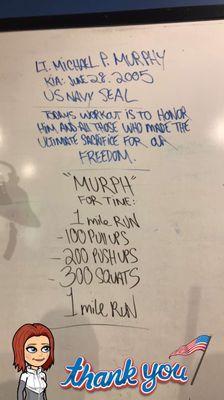 LT. MICHAEL P. MURPHY
KIA: JUNE 28, 2005
US NAVY SEAL
TODAYS WORKOUT IS TO HONOR
HIM AND ALL THOSE WHO MADE THE
ULTIMATE SACRIFICE FOR OUR
FREEDOM.
"MURPH"
FOR TIME:
1 mile RUN
-100 PULLUPS
-200 PUSHUPS
-300 SQUATS
1 mile RUN
thank you